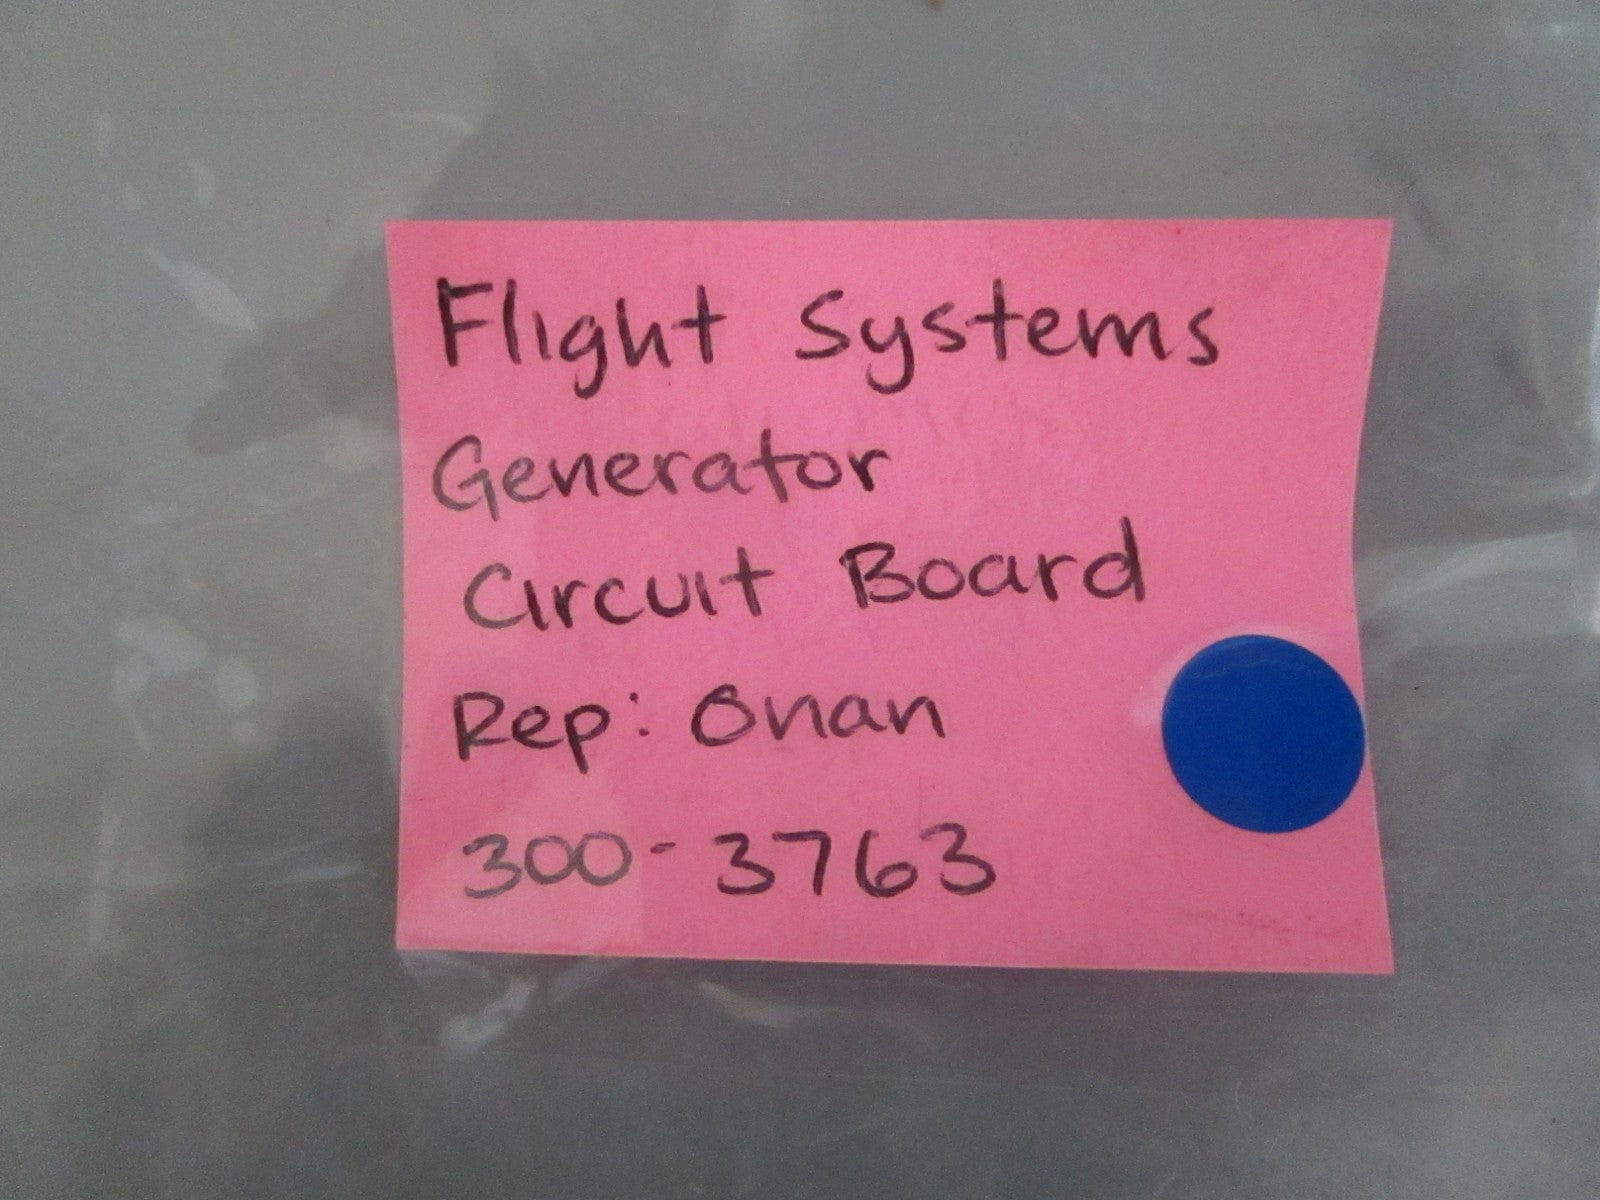 Flight Systems
Generator
Circuit Board
Rep: Onan
300-3763